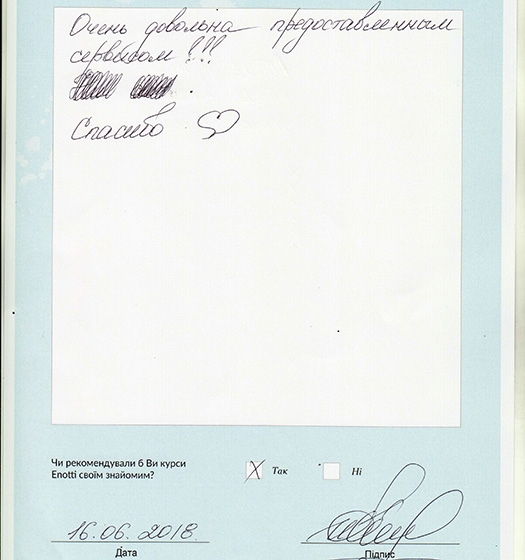 Очень довольна предоставленным
сервисом !!!
Спасибо
Чи рекомендували б Ви курси
Enotti своїм знайомим?
Так
Ні
16.06.2018
Дата
Підпис